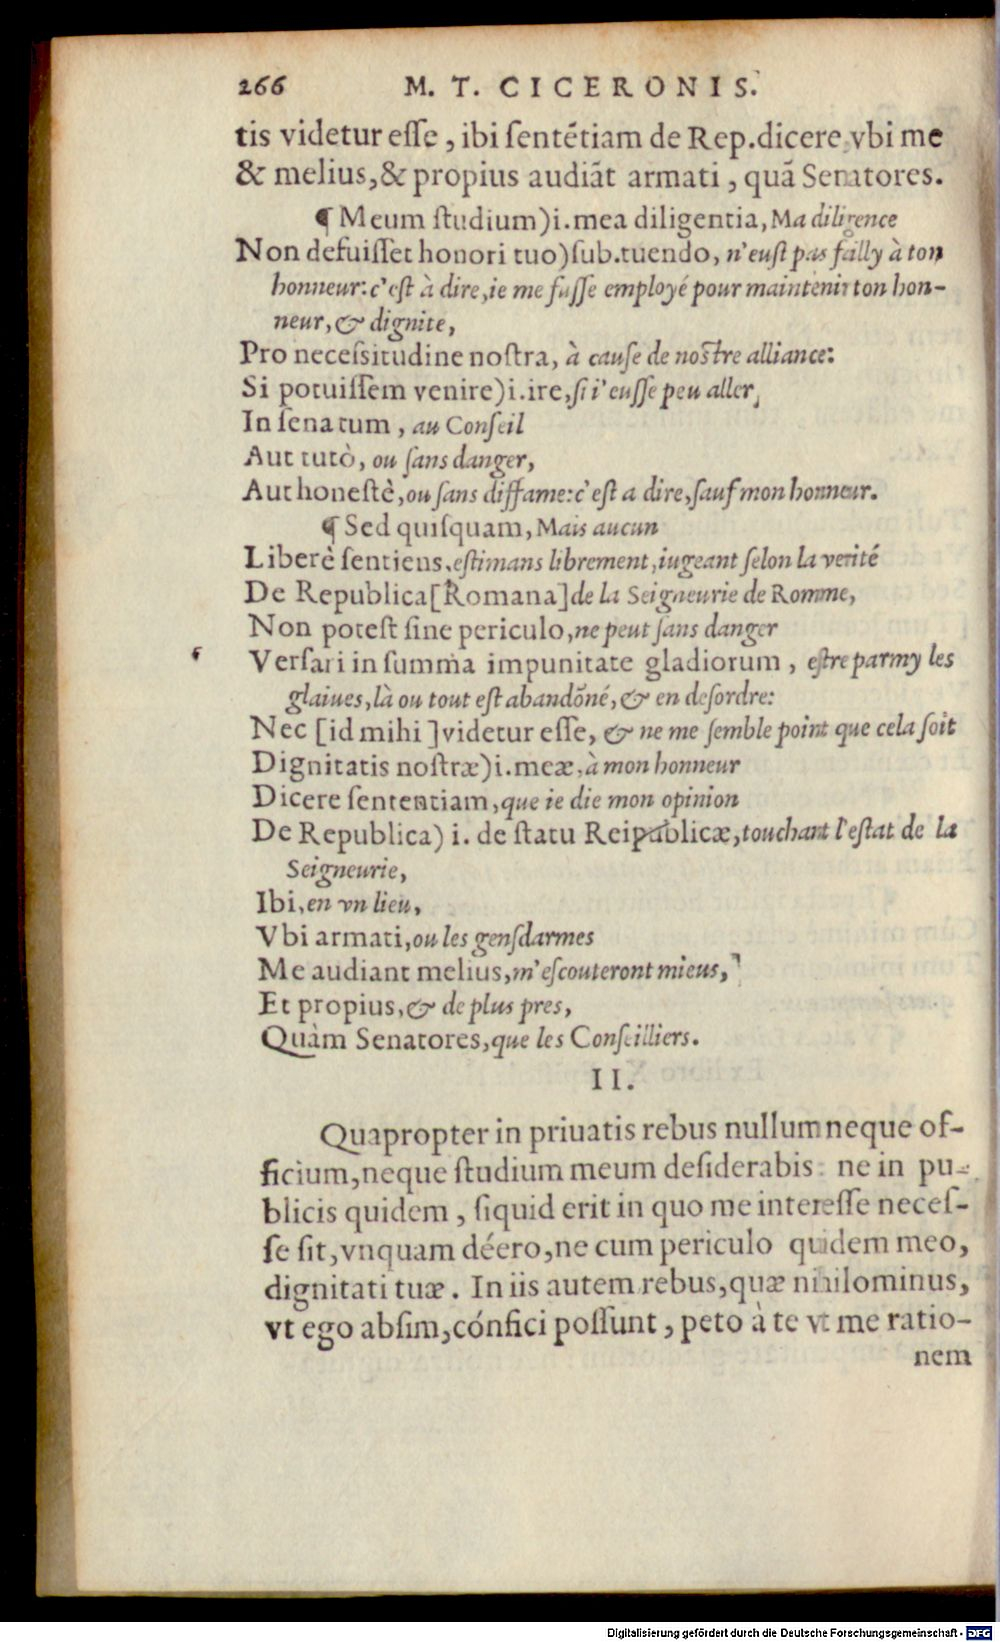 266 M. T. CICERONIS.
tis videtur eſſe, ibi ſentẽtiam de Rep. dicere vbi me
& melius, & propius audiãt armati, quã Senatores.
¶ Meum ſtudium) i. mea diligentia, Ma diligence
Non defuiſſet honori tuo) ſub. tuendo, n'euſt pas failly à ton
honneur: c'eſt à dire, ie me fuſſe employé pour maintenir ton hon-
neur, & dignite,
Pro neceſsitudine noſtra, à cauſe de noſtre alliance:
Si potuiſſem venire) i. ire, ſi i'euſſe peu aller,
In ſenatum, au Conſeil
Aut tutò, ou ſans danger,
Aut honeſtè, ou ſans diffame: c'eſt a dire, ſauf mon honneur.
¶ Sed quiſquam, Mais aucun
Liberè ſentiens, eſtimans librement, iugeant ſelon la verité
De Republica [Romana] de la Seigneurie de Romme,
Non poteſt ſine periculo, ne peut ſans danger
Verſari in ſumma impunitate gladiorum, eſtre parmy les
glaiues, là ou tout eſt abandõné, & en deſordre:
Nec [id mihi] videtur eſſe, & ne me ſemble point que cela ſoit
Dignitatis noſtræ) i. meæ, à mon honneur
Dicere ſententiam, que ie die mon opinion
De Republica) i. de ſtatu Reipublicæ, touchant l'eſtat de la
Seigneurie,
Ibi, en vn lieu,
Vbi armati, ou les genſdarmes
Me audiant melius, m'eſcouteront mieus,
Et propius, & de plus pres,
Quàm Senatores, que les Conſeilliers.
II.
Quapropter in priuatis rebus nullum neque of-
ficium, neque ſtudium meum deſiderabis: ne in pu-
blicis quidem, ſiquid erit in quo me intereſſe neceſ-
ſe ſit, vnquam déero, ne cum periculo quidem meo,
dignitati tuæ. In iis autem rebus, quæ nihilominus,
vt ego abſim, cónfici poſſunt, peto à te vt me ratio-
nem
Digitalisierung gefördert durch die Deutsche Forschungsgemeinschaft - DFG